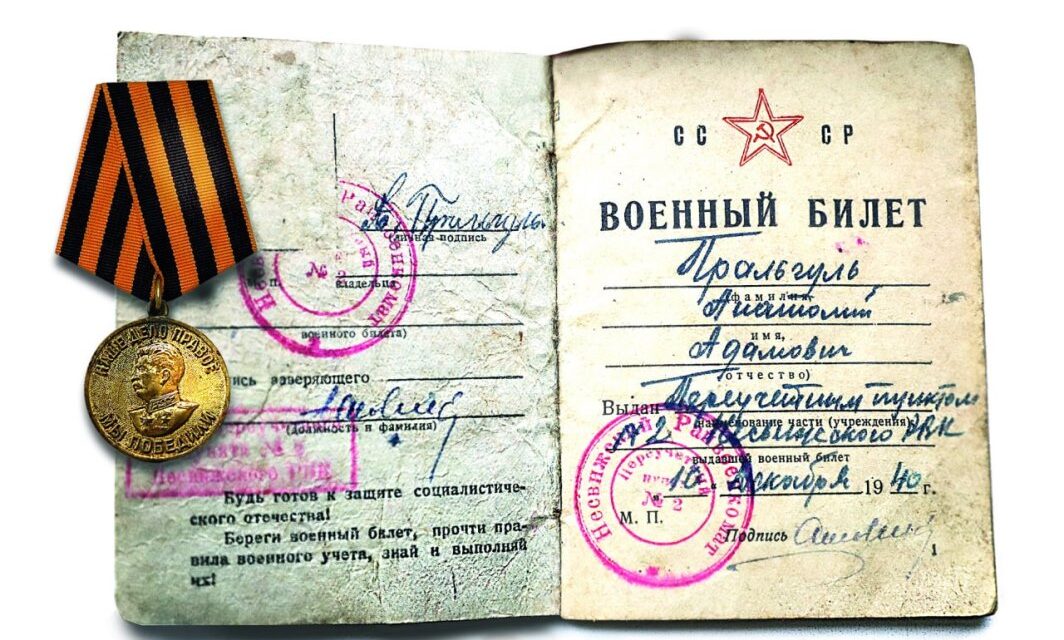 НАШЕ ДЕЛО ПРАВОЕ
МЫ ПОБЕДИЛИ
А. Пральгуль
(личная подпись
М. п. владельца
военного билета)
заверяющего
(должность и фамилия)
Несвижского РВК
Будь готов к защите социалистиче-
ского отечества!
Береги военный билет, прочти пра-
вила военного учета, знай и выполняй
их!
СС СР
ВОЕННЫЙ БИЛЕТ
Пральгуль
(фамилия,
Анатолий
имя,
Адамович
отчество)
Выдан Переучетным пунктом
(наименование части (учреждения),
№2 Несвижского РВК
выдавшей военный билет
10 декабря 1940 г.
М. П.
Подпись
1
Несвижский Райвоенкомат
Переучетный
№ 2